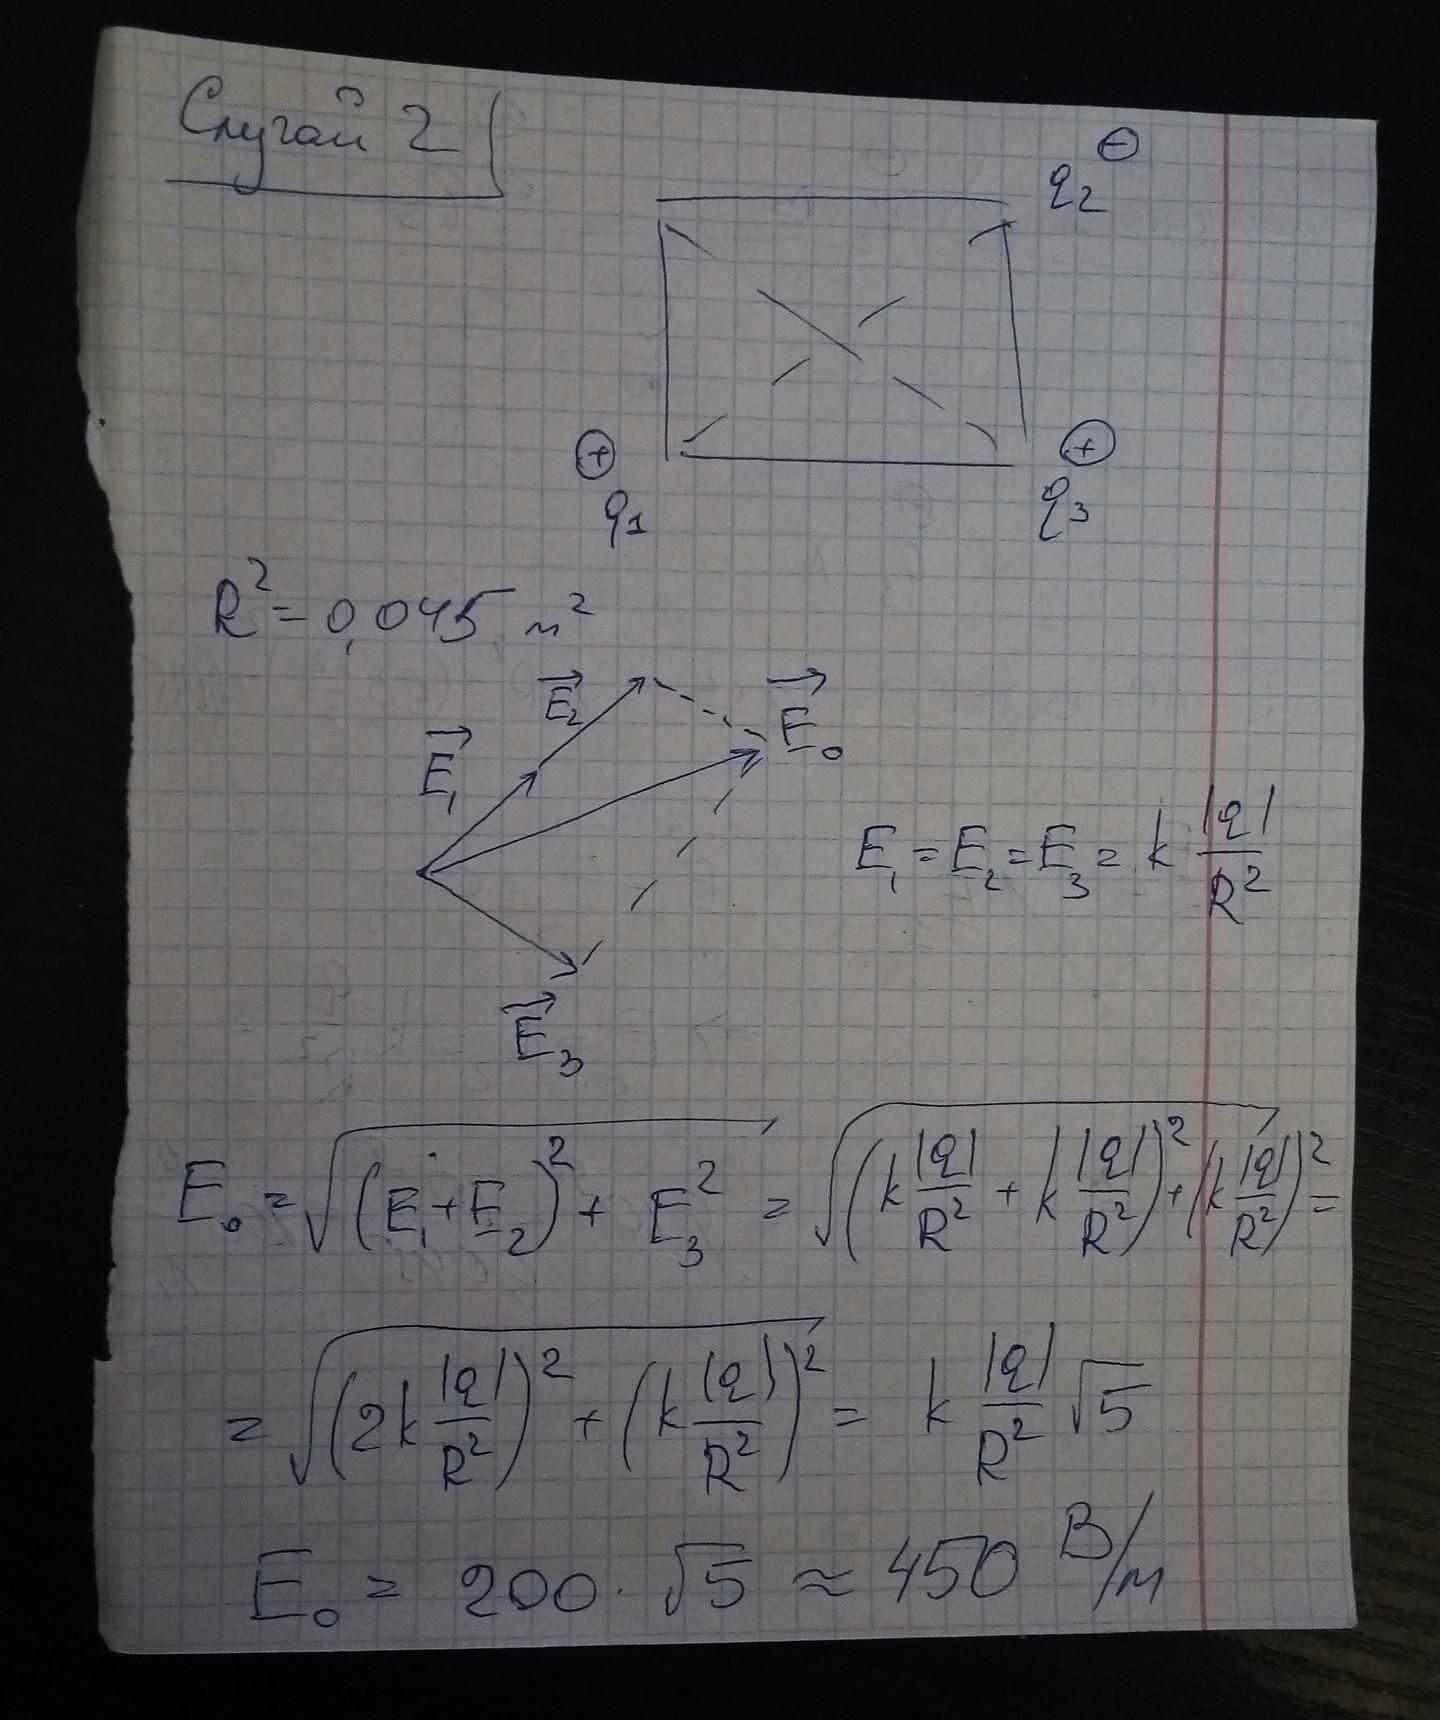 Случай 2
⊖
q₂
⊕
q₁
⊕
q₃
R² = 0,045 м²
E⃗₁
E⃗₂
E⃗₀
E⃗₃
E₁ = E₂ = E₃ = k |q|/R²
E₀ = √((E₁ + E₂)² + E₃²) = √((k |q|/R² + k |q|/R²)² + (k |q|/R²)²) =
= √((2k |q|/R²)² + (k |q|/R²)²) = k |q|/R² √5
E₀ = 200 · √5 ≈ 450 В/м